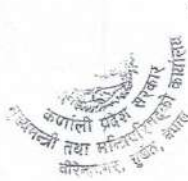 कर्णाली प्रदेश सरकार
मुख्यमन्त्री तथा मन्त्रिपरिषद्को कार्यालय
वीरेन्द्रनगर, सुर्खेत, नेपाल